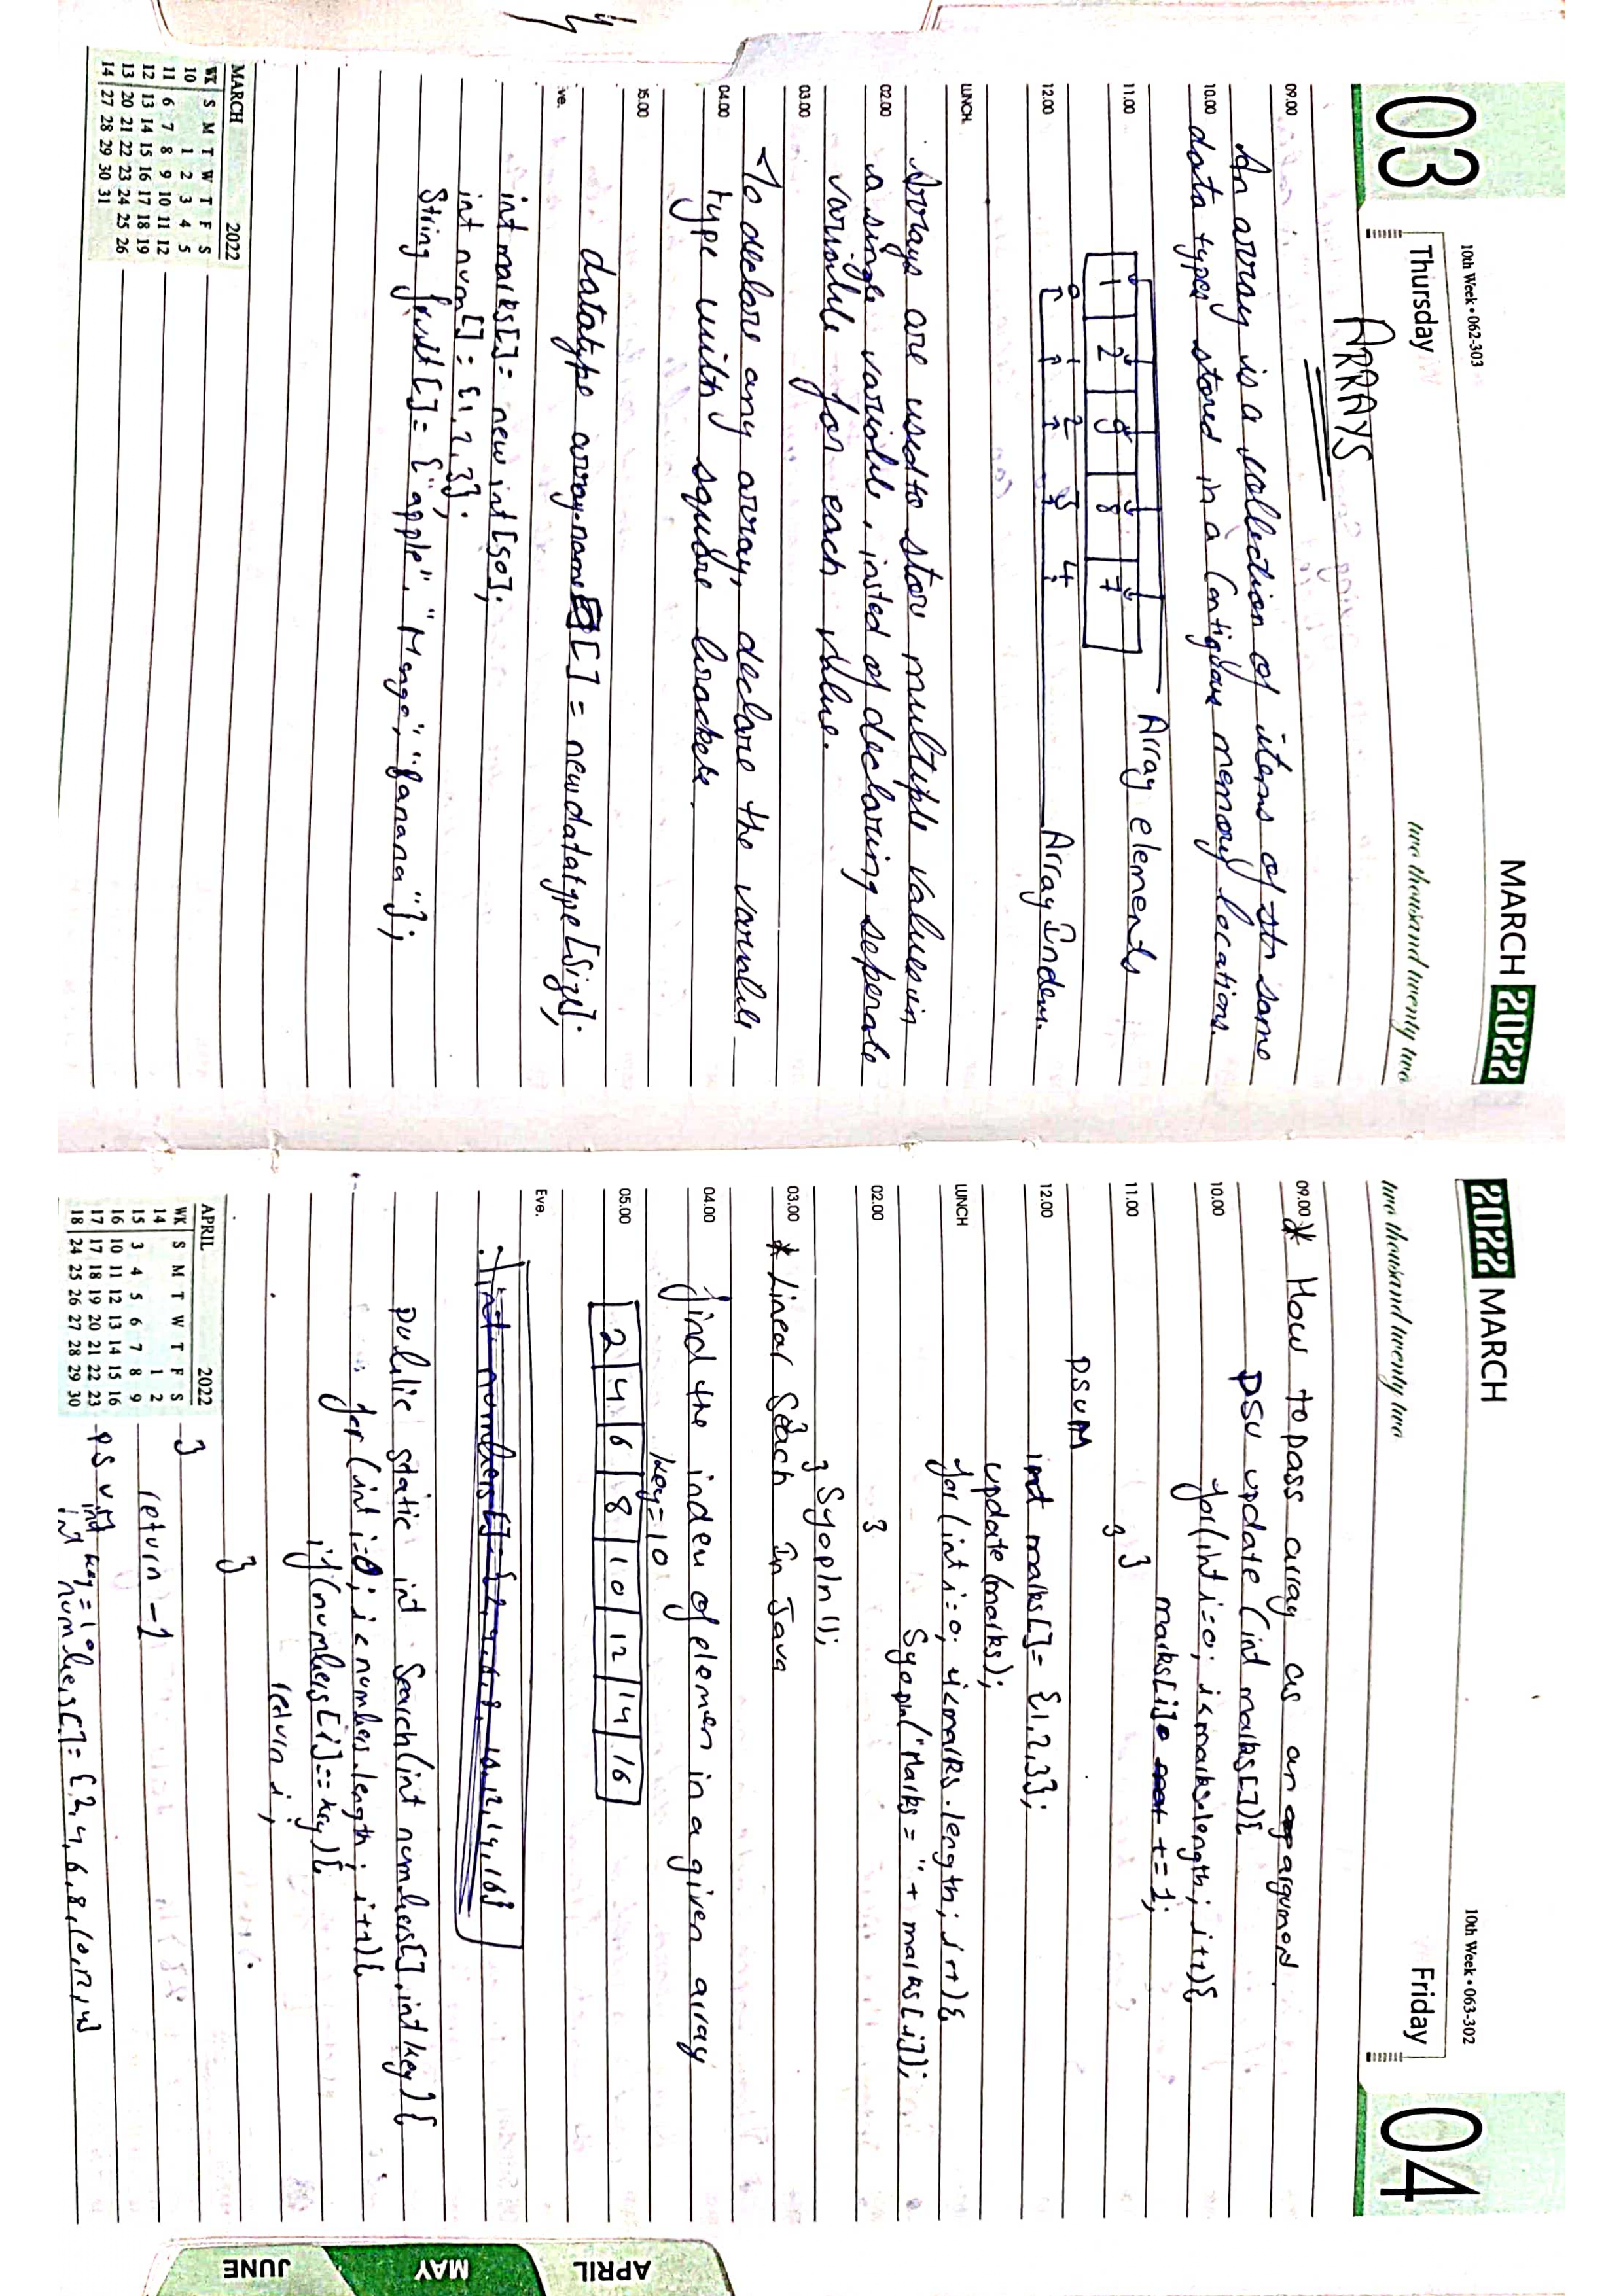 03
Thursday
10th Week • 062-303
MARCH 2022
two thousand twenty two
ARRAYS
09.00
An array is a collection of items of same
10.00
data types stored in a Contiguous memory locations.
11.00
1 2 8 7
Array elements
0 1 2 3 4
Array Index.
12.00
LUNCH
Arrays are used to stor multiple values in
02.00
a single variable, insted of declaring seperate
variable for each value.
03.00
To declare any array, declare the variable
04.00
type with square brackets.
05.00
datatype array.name[] = new datatype[size];
Eve.
int marks[] = new int[50];
int num[] = {1,2,3};
String fruit[] = {"apple", "Mango", "Banana"};
MARCH 2022
WK S M T W T F S
10 1 2 3 4 5
11 6 7 8 9 10 11 12
12 13 14 15 16 17 18 19
13 20 21 22 23 24 25 26
14 27 28 29 30 31
2022 MARCH
two thousand twenty two
10th Week • 063-302
Friday
04
09.00 * How to pass array as an argumed
PSV update (int marks[]){
10.00
for(int i=0; i<marks.length; i++){
marks[i] += 1;
11.00
}
}
PSVM
12.00
int marks[]= {1,2,3};
update(marks);
LUNCH
for(int i=0; i<marks.length; i++){
Sysopln("Marks = "+ marks[i]);
02.00
}
Sysopln();
}
03.00
* Linear Seach In Java
04.00
find the index of elemen in a given array
key=10
05.00
2 4 6 8 10 12 14 16
Eve.
int numbers[]= {2,4,6,8,10,12,14,16}
public static int Search(int numbers[], int key){
for(int i=0; i<numbers.length; i++){
if(numbers[i]==key){
return i;
}
}
return -1
PSVM
int key=10
int numbers[]= {2,4,6,8,10,12,14}
APRIL 2022
WK S M T W T F S
14 1 2
15 3 4 5 6 7 8 9
16 10 11 12 13 14 15 16
17 17 18 19 20 21 22 23
18 24 25 26 27 28 29 30
APRIL
MAY
JUNE